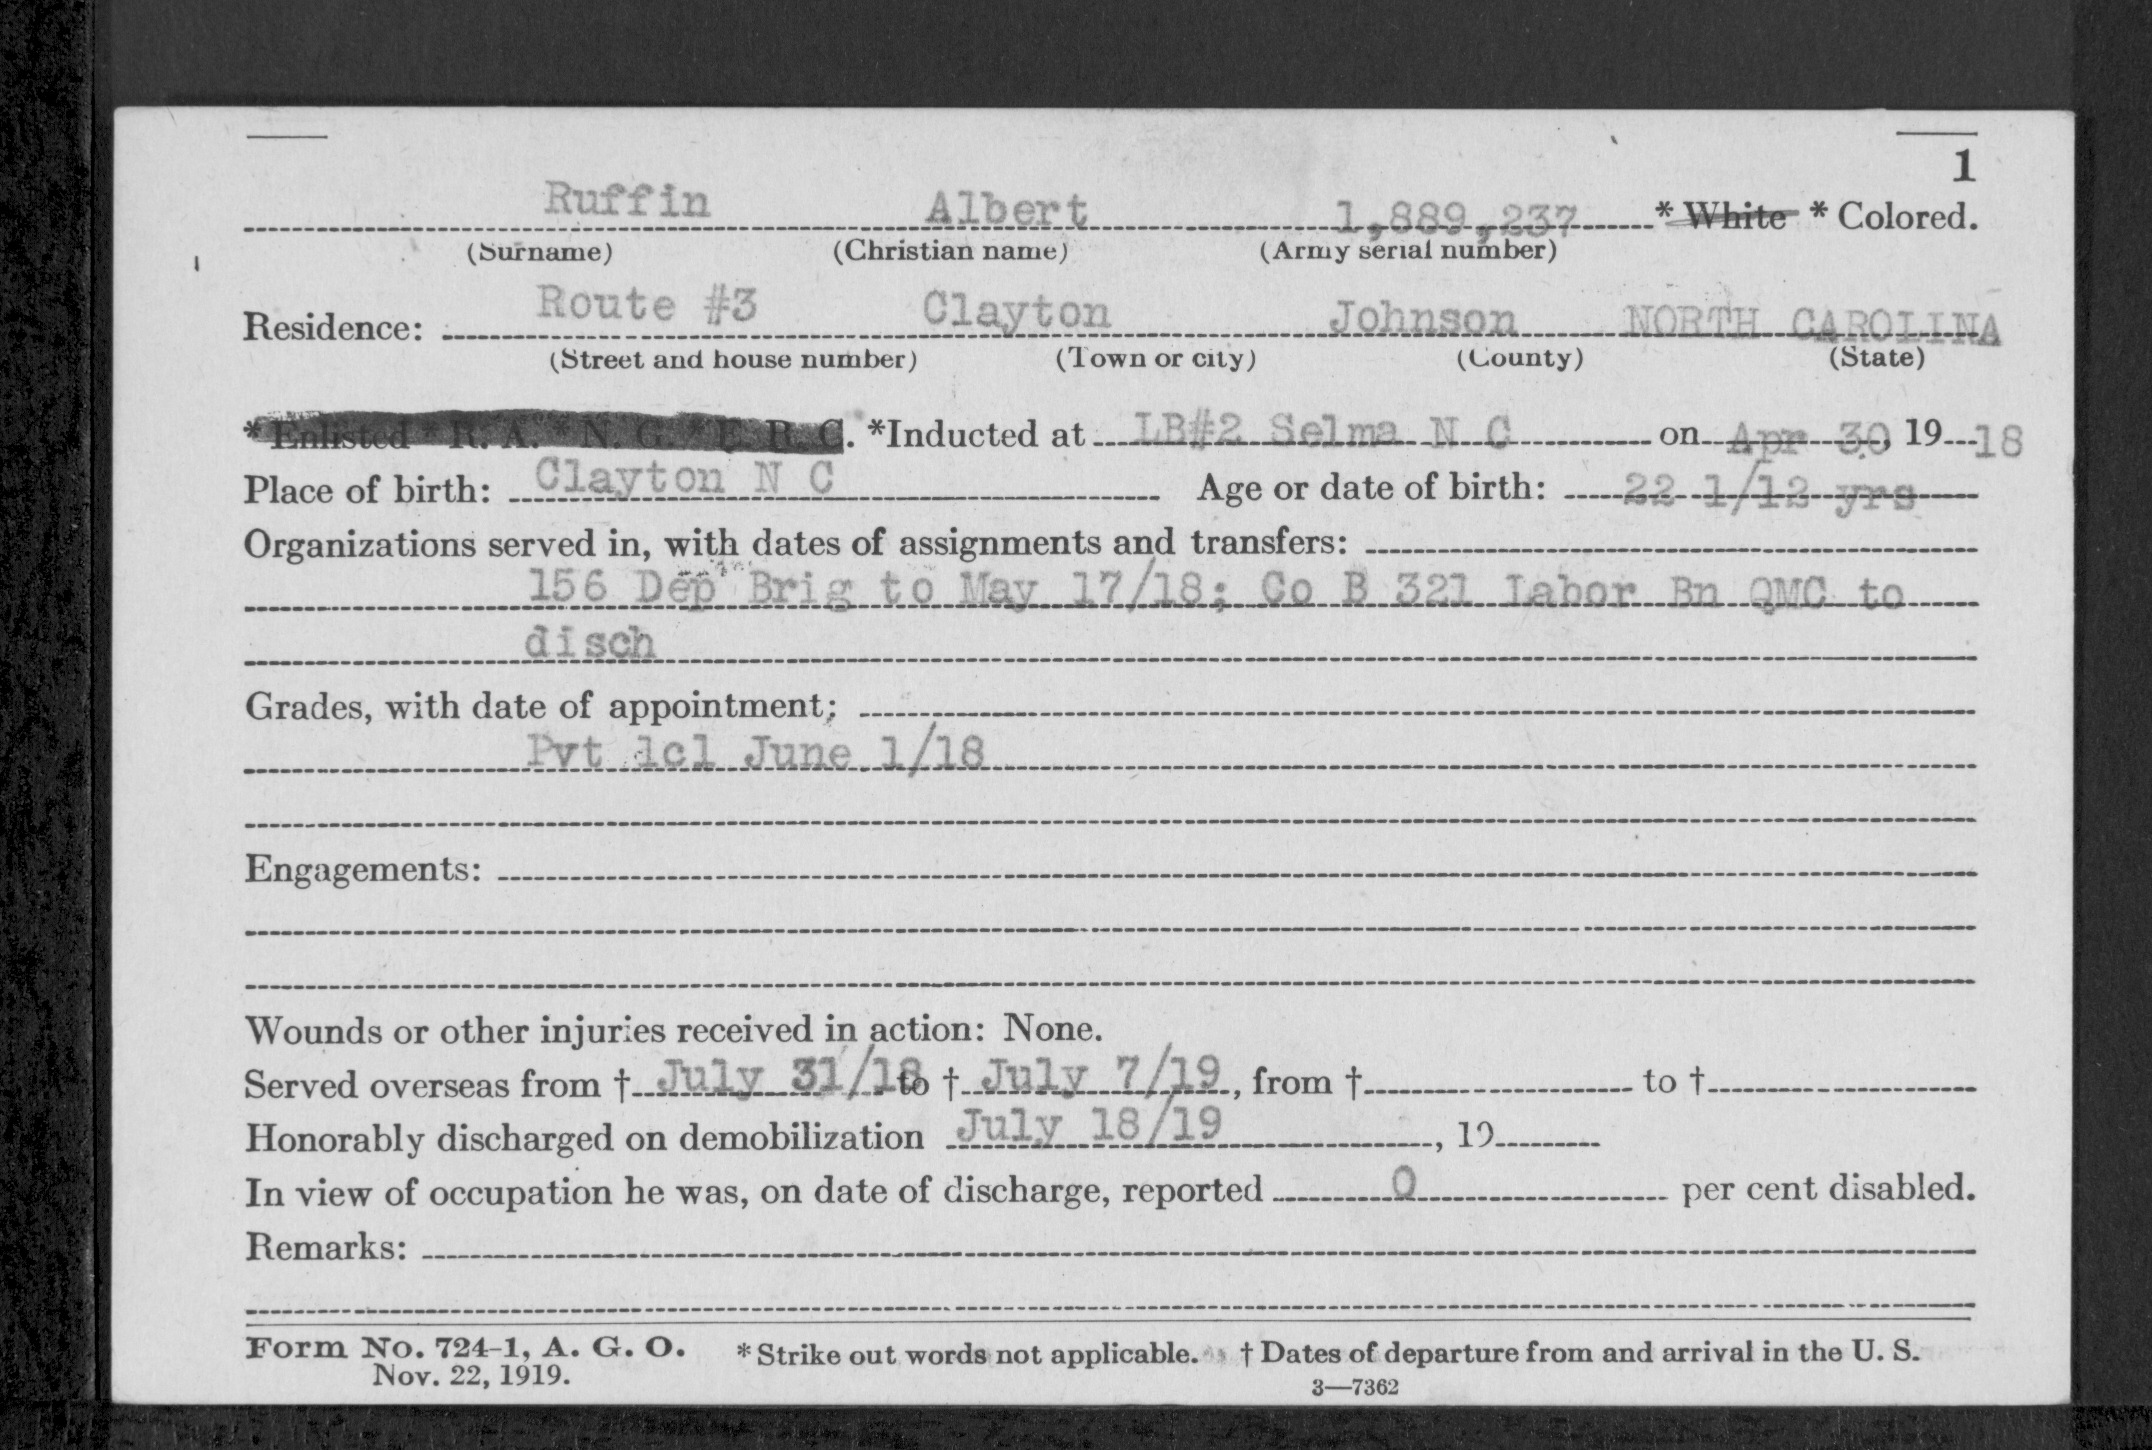 1
Ruffin Albert 1,889,237 * White * Colored.
(Surname) (Christian name) (Army serial number)
Residence: Route #3 Clayton Johnson NORTH CAROLINA
(Street and house number) (Town or city) (County) (State)
* Enlisted * R. A. * N. G. * E. R. C. *Inducted at LB#2 Selma N C on Apr 30, 19 18
Place of birth: Clayton N C Age or date of birth: 22 1/12 yrs
Organizations served in, with dates of assignments and transfers:
156 Dep Brig to May 17/18; Co B 321 Labor Bn QMC to
disch
Grades, with date of appointment:
Pvt 1cl June 1/18
Engagements:
Wounds or other injuries received in action: None.
Served overseas from † July 31/18 to † July 7/19, from † to †
Honorably discharged on demobilization July 18/19, 19
In view of occupation he was, on date of discharge, reported 0 per cent disabled.
Remarks:
Form No. 724-1, A. G. O. * Strike out words not applicable. † Dates of departure from and arrival in the U. S.
Nov. 22, 1919. 3—7362